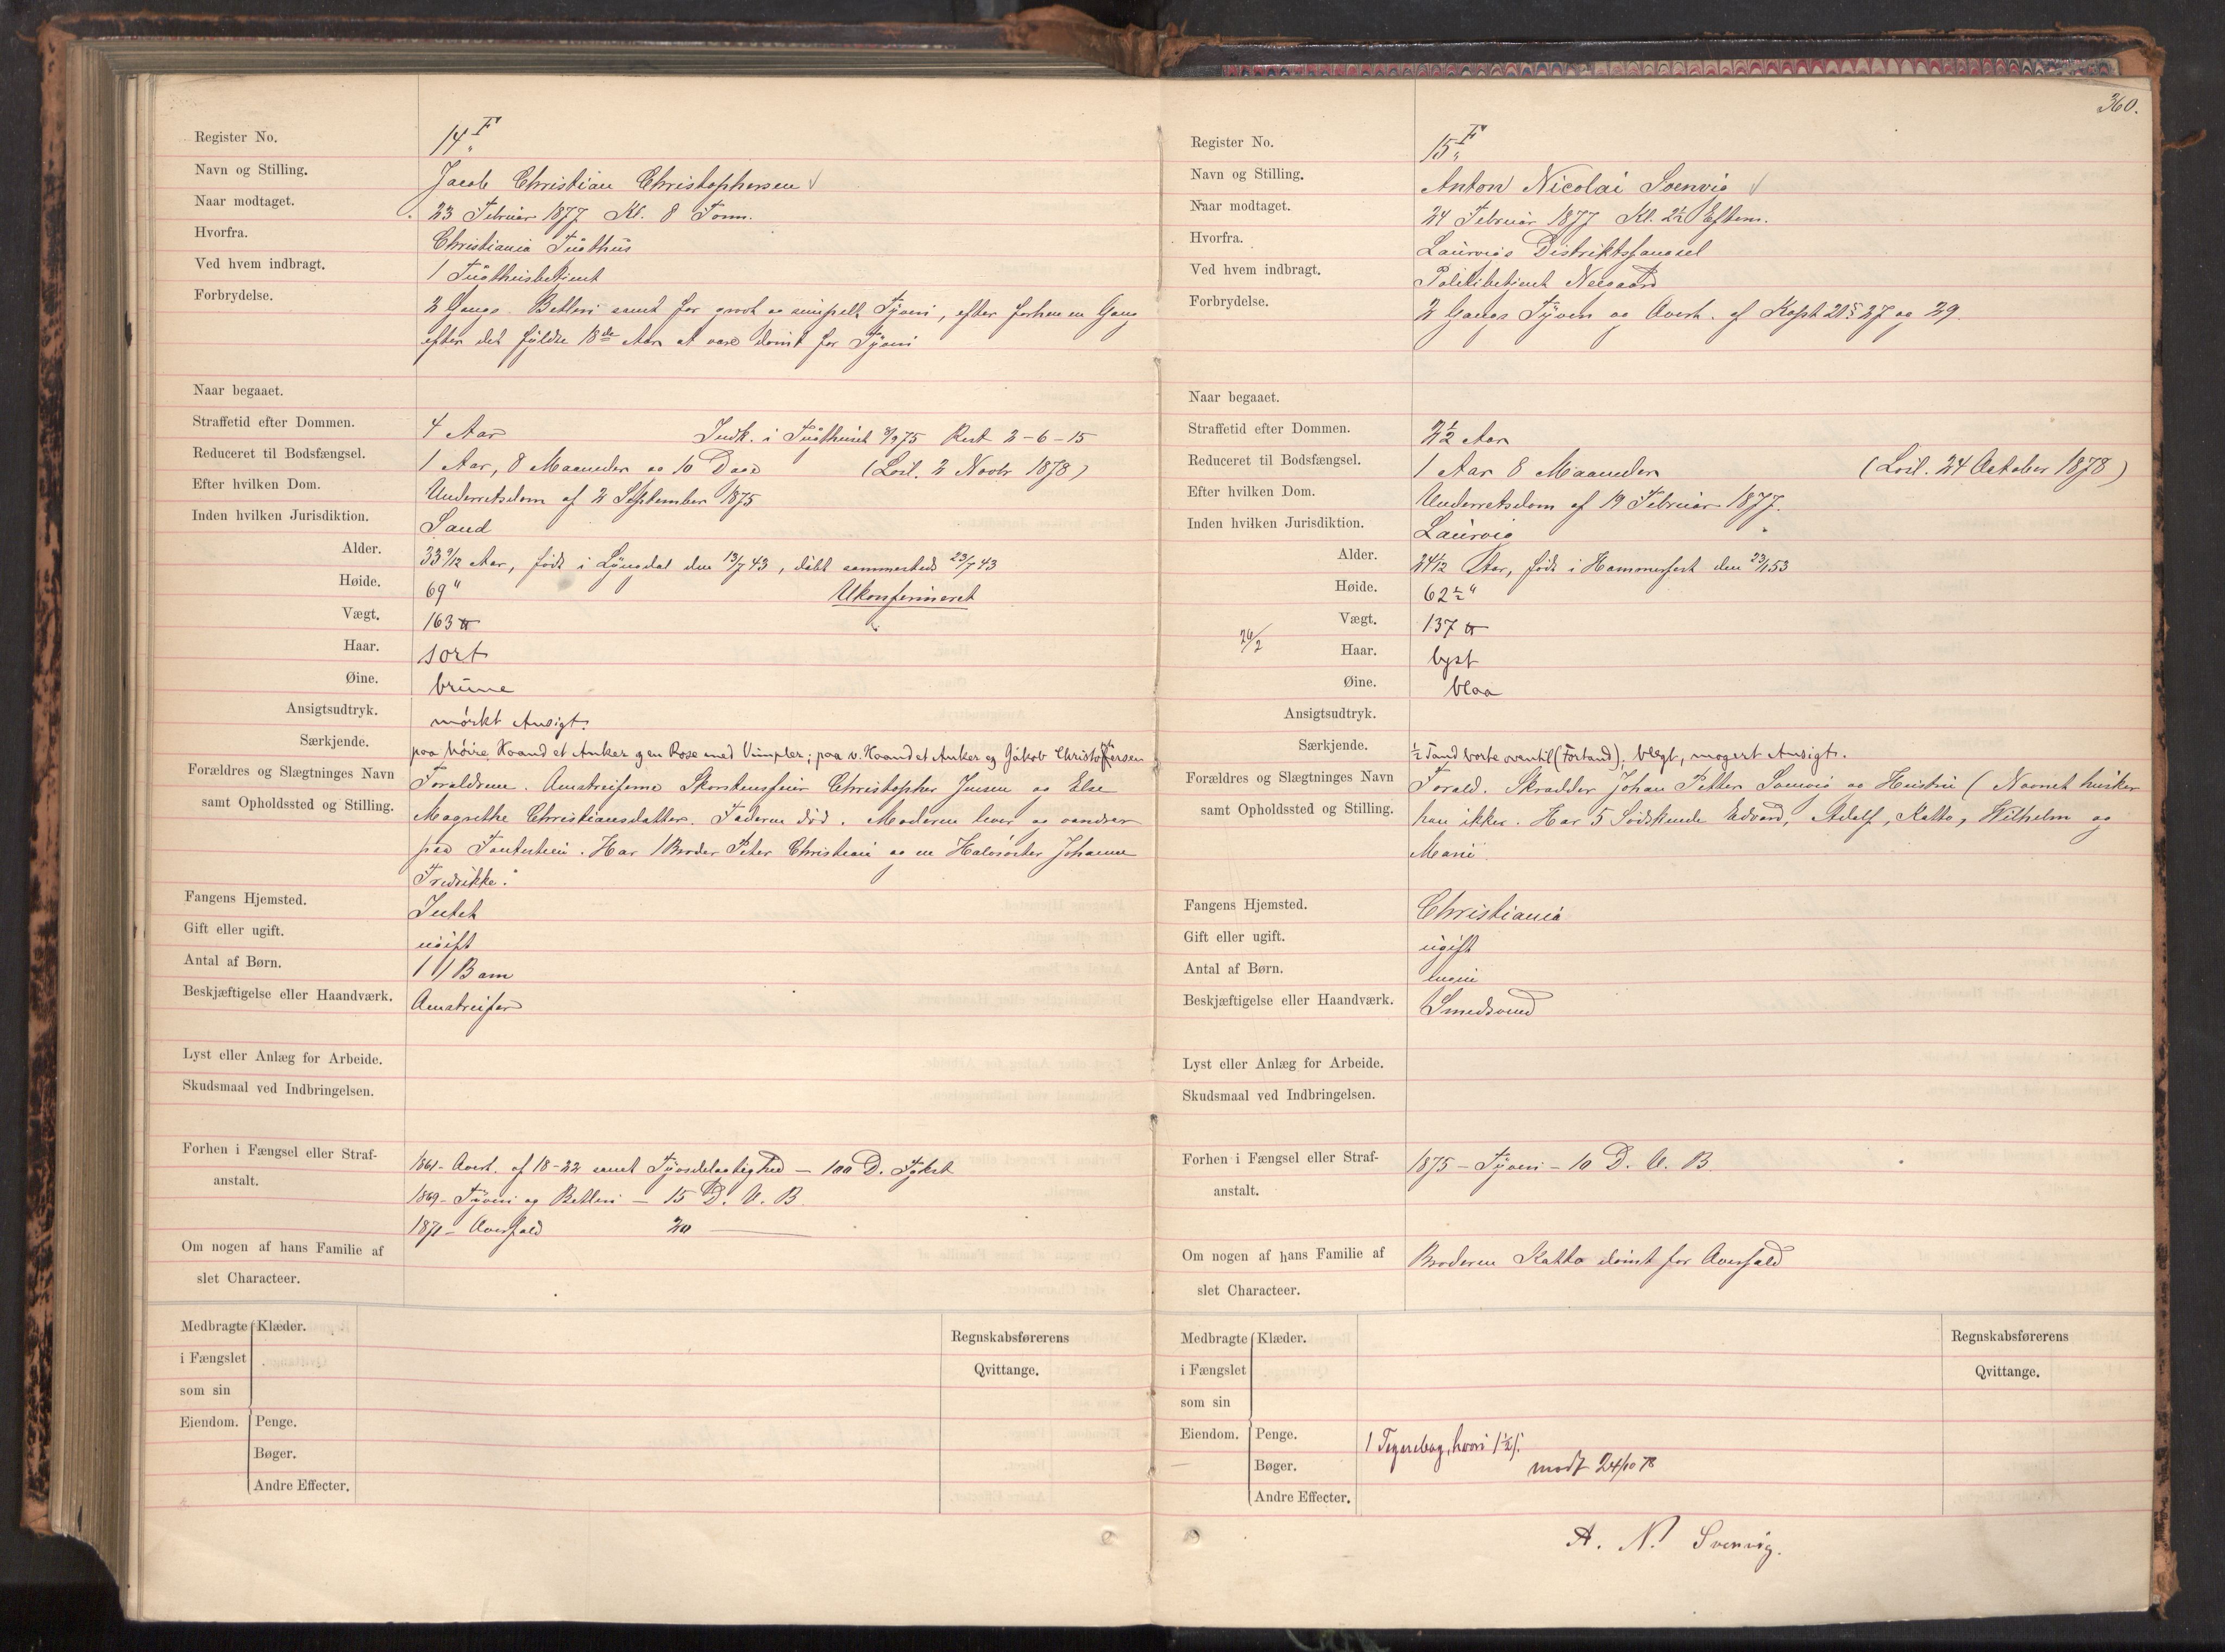 Register No. 14 F
Navn og Stilling. Jacob Christian Christophersen
Naar modtaget. 23 Februar 1877 Kl. 8 Form.
Hvorfra. Christiania Tugthus
Ved hvem indbragt. 1 Tugthusbetjent
Forbrydelse. 2 Gange Betleri samt for grovt og simpelt Tyveri, efter forhen en Gang
efter det fyldte 18de Aar at være dømt for Tyveri
Naar begaaet.
Straffetid efter Dommen. 4 Aar Indk. i Tugthuset 3/9 75 Rest 2-6-15
Reduceret til Bodsfængsel. 1 Aar, 8 Maaneder og 10 Dage (Løsl. 2 Novbr 1878)
Efter hvilken Dom. Underretsdom af 2 September 1875
Inden hvilken Jurisdiktion. Sand
Alder. 33 9/12 Aar, født i Lyngdal den 13/7 43, døbt sammesteds 23/7 43
Høide. 69" Ukonfirmeret
Vægt. 163 ℔
Haar. sort
Øine. brune
Ansigtsudtryk. mørkt Ansigt.
Særkjende. paa høire Haand et Anker g en Rose med Vimpler; paa v. Haand et Anker og Jakob Christofersen
Forældres og Slægtninges Navn Forældrene. Omstreiferne Skorstensfeier Christopher Jensen og Else
samt Opholdssted og Stilling. Magrethe Christiansdatter. Faderen død. Moderen lever og vandrer
paa Fantestien. Har 1 Broder Peter Christian og en Halvsøster Johanne
Fredrikke.
Fangens Hjemsted. Intet
Gift eller ugift. ugift
Antal af Børn. 1 / Barn
Beskjæftigelse eller Haandværk. Omstreifer
Lyst eller Anlæg for Arbeide.
Skudsmaal ved Indbringelsen.
Forhen i Fængsel eller Straf- 1861- Overt. af 18-22 samt Tyvsdelagtighed —
anstalt. 1869- Tyveri og Betleri — 15 D. V. B.
1871- Overfald 20 —
Om nogen af hans Familie af
slet Characteer.
Medbragte Klæder.
i Fængslet
som sin
Eiendom. Penge.
Bøger.
Andre Effecter.
Regnskabsførerens
Qvittange.
360.
Register No. 15 F
Navn og Stilling. Anton Nicolai Svenvig
Naar modtaget. 24 Februar 1877 Kl. 2½ Efterm.
Hvorfra. Laurvigs Distriktsfængsel
Ved hvem indbragt. Politibetjent Neegaard
Forbrydelse. 2 Gangs Tyveri og Overt. af Kapt 21 § 27 og 29.
Naar begaaet.
Straffetid efter Dommen. 2½ Aar
Reduceret til Bodsfængsel. 1 Aar 8 Maaneder (Løsl. 24 October 1878)
Efter hvilken Dom. Underretsdom af 19 Februar 1877.
Inden hvilken Jurisdiktion. Laurvig
Alder. 24 1/12 Aar, født i Hammerfest den 23/1 53
Høide. 62½"
Vægt. 137 ℔
26/2
Haar. lyst
Øine. blaa
Ansigtsudtryk.
Særkjende. ½ Tand borte oventil (Fortand), blegt, magert Ansigt.
Forældres og Slægtninges Navn Foræld. Skrædder Johan Petter Svenvig og Hustru (Navnet husker
samt Opholdssted og Stilling. han ikke. Har 5 Sødskende Edvard, Adolf, Katto, Wilhelm og
Marie
Fangens Hjemsted. Christiania
Gift eller ugift. ugift
Antal af Børn. ingen
Beskjæftigelse eller Haandværk. Smedsvend
Lyst eller Anlæg for Arbeide.
Skudsmaal ved Indbringelsen.
Forhen i Fængsel eller Straf- 1875 - Tyveri - 10 D. V. B.
anstalt.
Om nogen af hans Familie af Broderen Katto dømt for Overfald
slet Characteer.
Medbragte Klæder.
i Fængslet
som sin
Eiendom. Penge. 1 Tegnebog, hvori 1½
Bøger. modt 24/10 78
Andre Effecter.
Regnskabsførerens
Qvittange.
A. N. Svenvig.